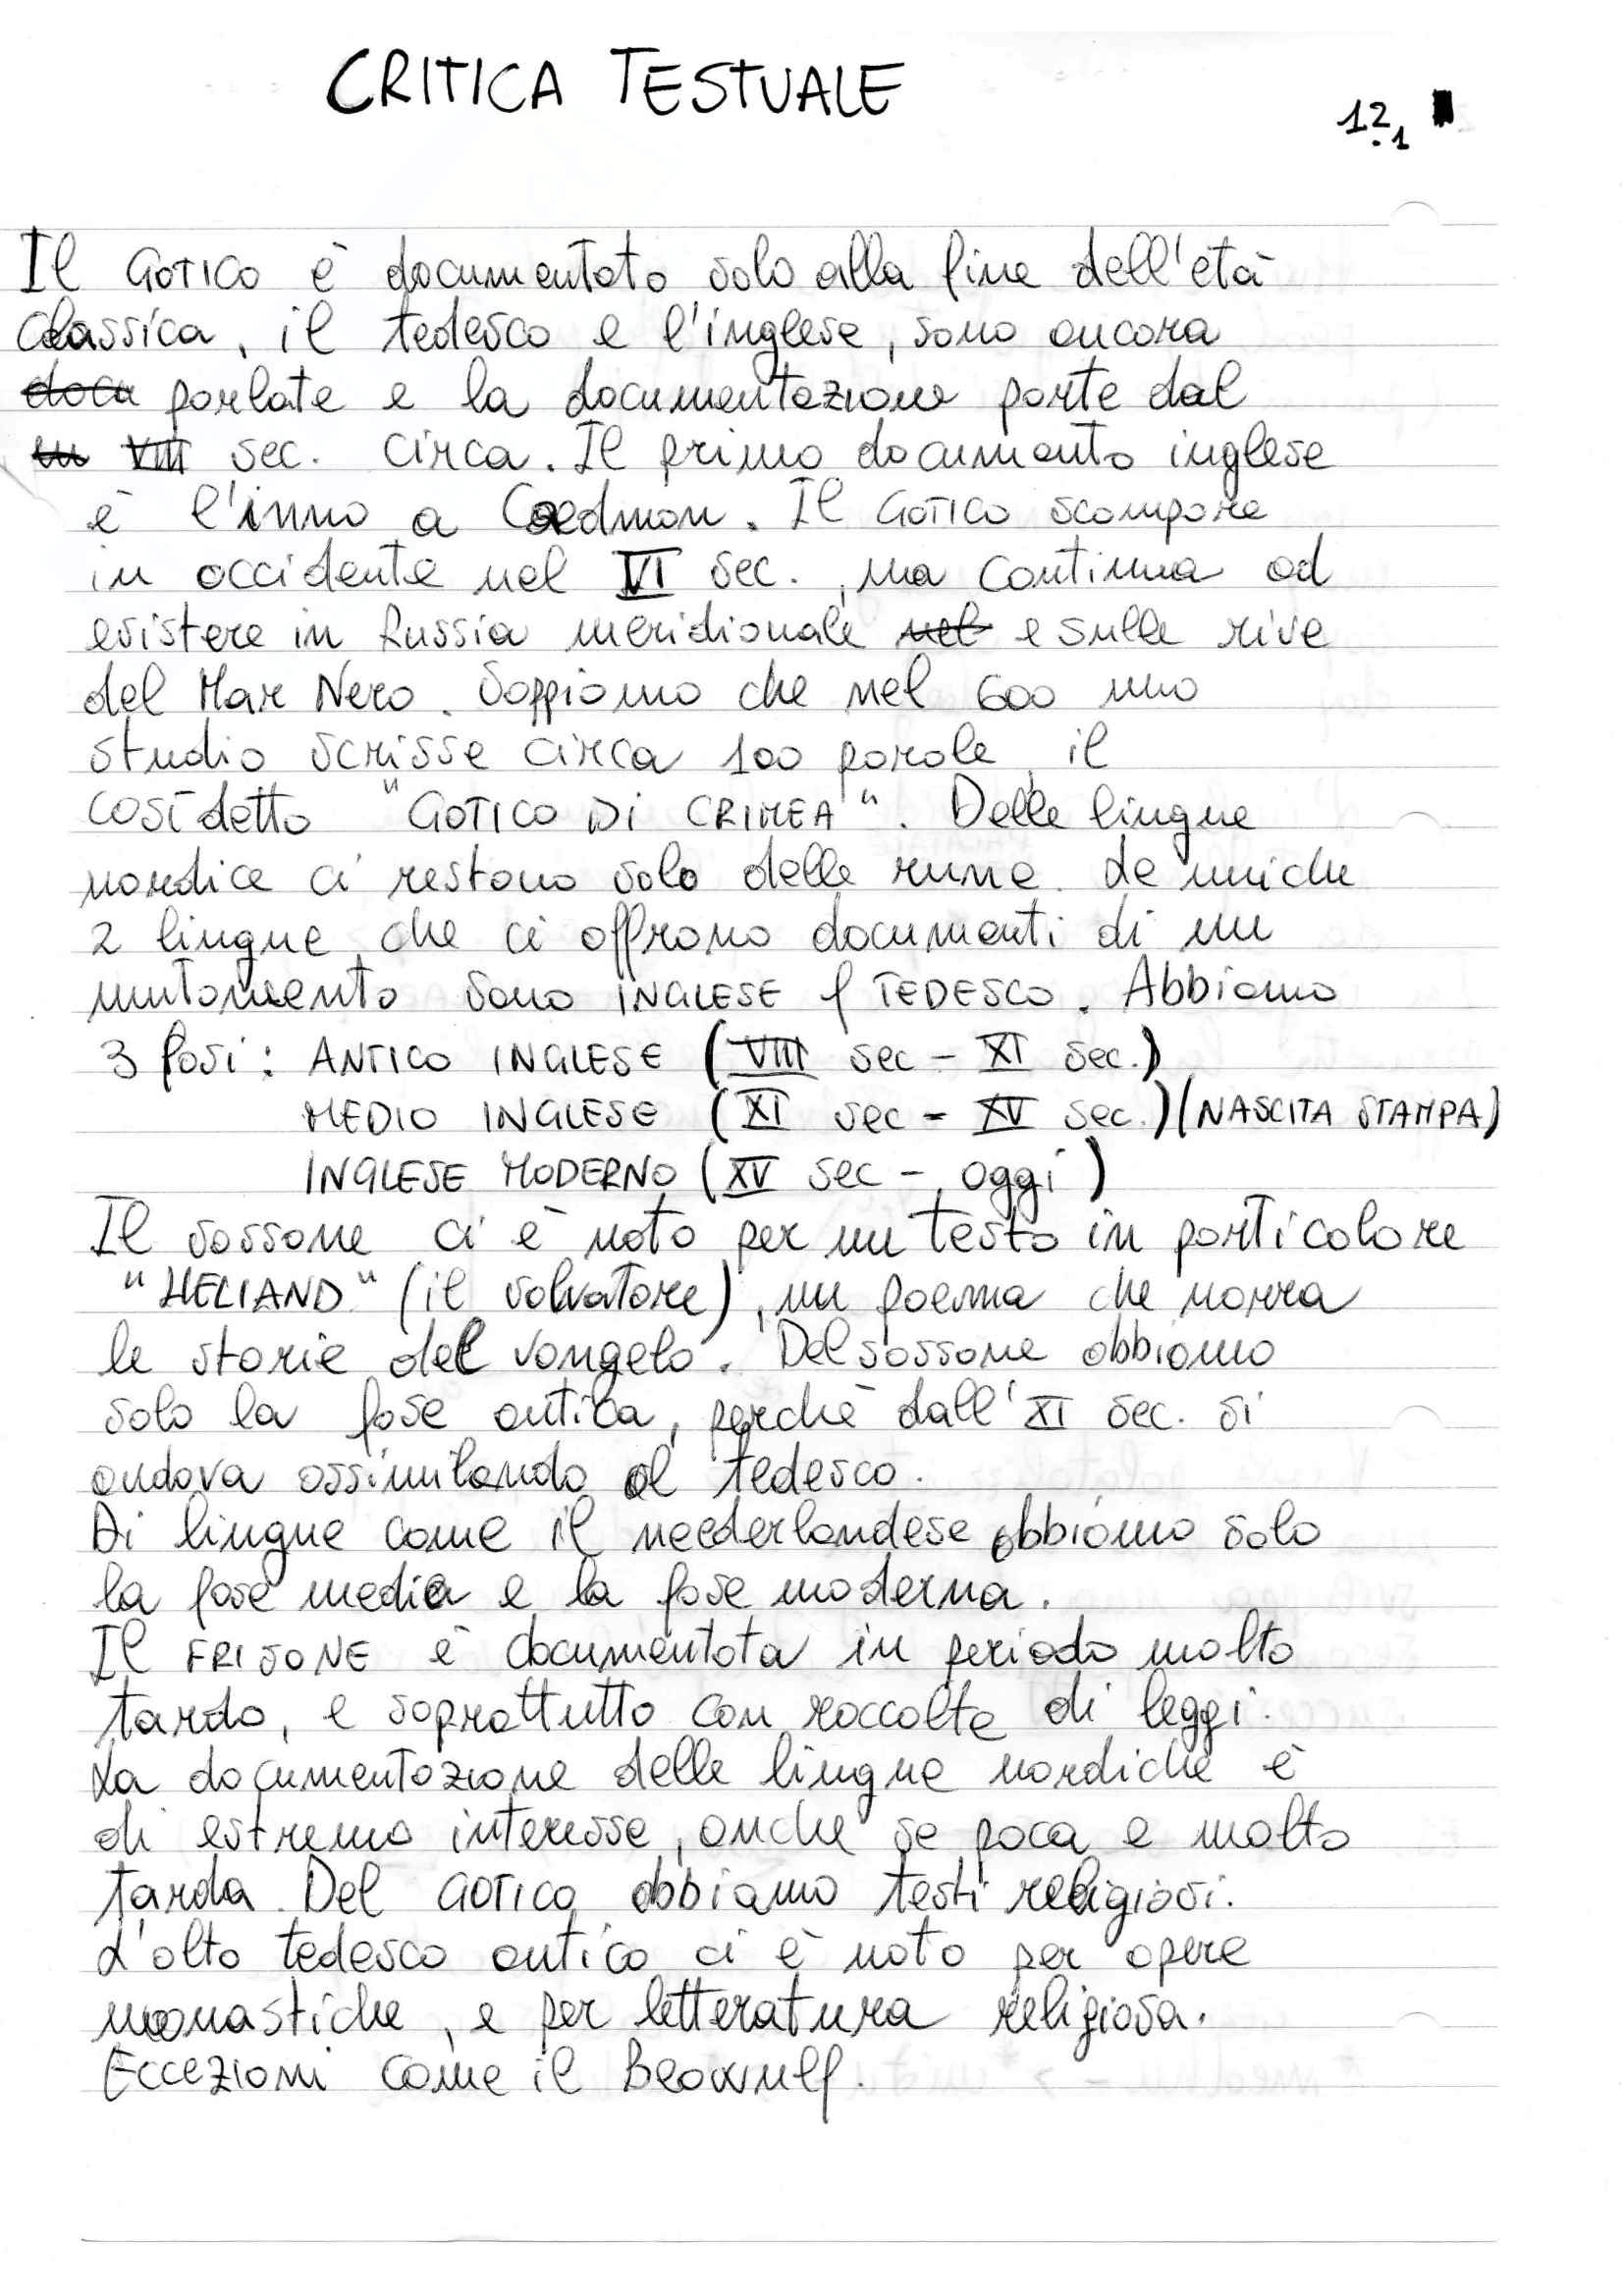 CRITICA TESTUALE
12.1
Il GOTICO è documentato solo alla fine dell'età
classica, il tedesco e l'inglese, sono ancora
docu parlate e la documentazione parte dal
in VIII sec. circa. Il primo documento inglese
è l'inno a Caedmon. Il GOTICO scompare
in occidente nel VI sec., ma continua ad
esistere in Russia meridionale nel e sulle rive
del Mar Nero. Sappiamo che nel 600 uno
studio scrisse circa 100 parole, il
cosídetto "GOTICO DI CRIMEA". Delle lingue
nordice ci restano solo delle rune. Le uniche
2 lingue che ci offrono documenti di un
mutamento sono INGLESE e TEDESCO. Abbiamo
3 fasi: ANTICO INGLESE (VIII sec - XI sec.)
MEDIO INGLESE (XI sec - XV sec.) (NASCITA STAMPA)
INGLESE MODERNO (XV sec - oggi)
Il sassone ci è noto per un testo in particolare
"HELIAND" (il salvatore), un poema che narra
le storie del vangelo. Del sassone abbiamo
solo la fase antica, perchè dall'XI sec. si
andava assimilando al tedesco.
Di lingue come il neederlandese abbiamo solo
la fase media e la fase moderna.
Il FRISONE è documentata in periodo molto
tardo, e soprattutto con raccolte di leggi.
La documentazione delle lingue nordiche è
di estremo interesse, anche se poca e molto
tarda. Del GOTICO abbiamo testi religiosi.
L'alto tedesco antico ci è noto per opere
monastiche, e per letteratura religiosa.
Eccezioni come il Beowulf.